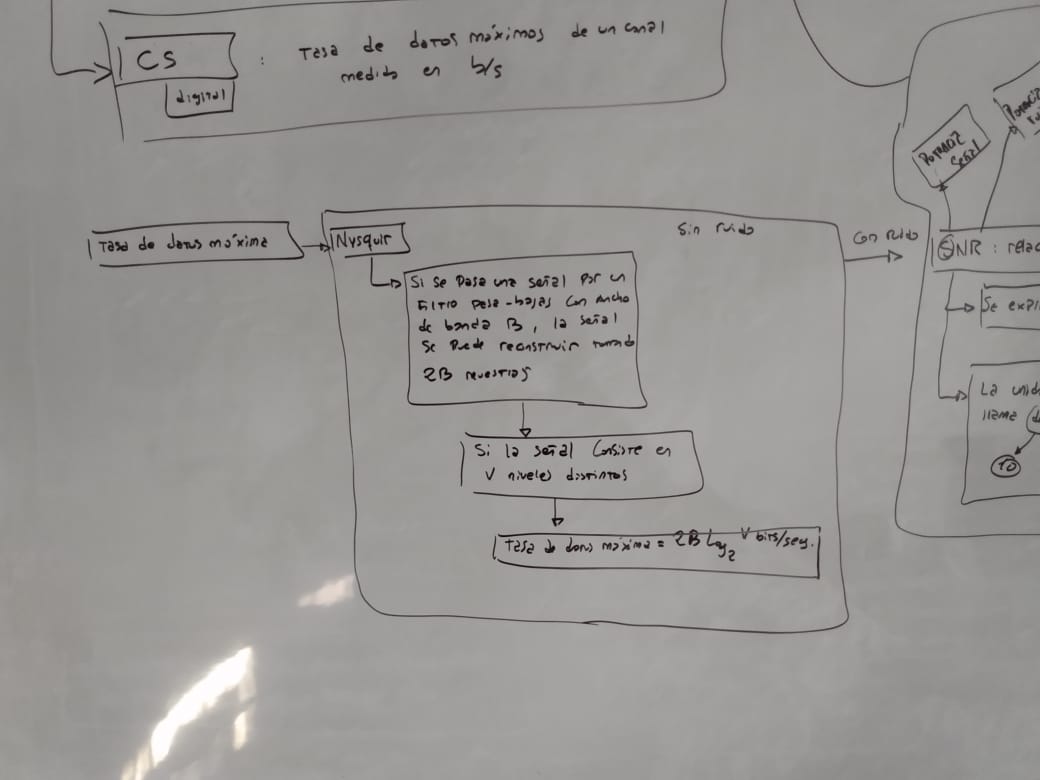 CS
digital
: Tasa de datos máximos de un canal
medido en b/s
Tasa de datos máxima
Nysquit
Sin ruido
Si se pasa una señal por un
filtro pasa-bajas con ancho
de banda B, la señal
se puede reconstruir tomando
2B muestras
Si la señal consiste en
V niveles distintos
Tasa de datos máxima = 2B Log₂ V bits/seg.
Con ruido
Potencia
señal
Potencia
SNR : relac
Se expr
La unid
llama
10